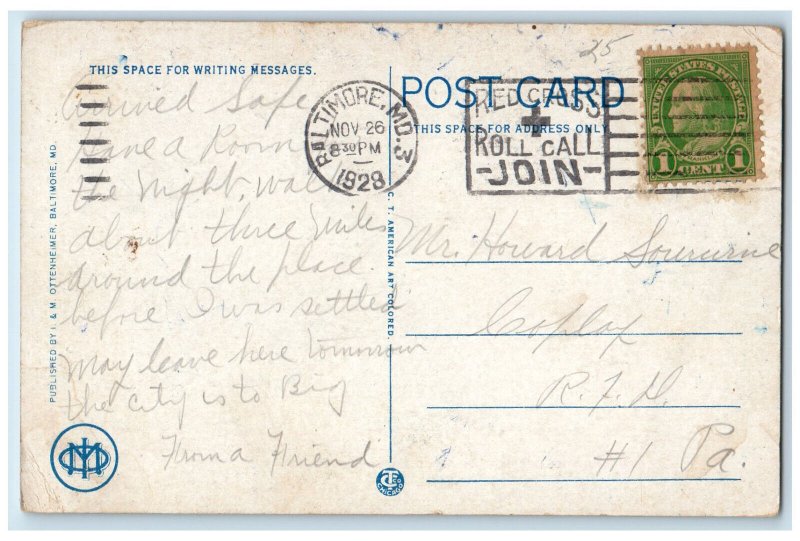 25
THIS SPACE FOR WRITING MESSAGES.
Arrived Safe
have a Room
the night, walk
about three miles
around the place
before I was settled
may leave here tomorrow
the city is to Big
From a Friend
PUBLISHED BY I. & M. OTTENHEIMER, BALTIMORE, MD.
C. T. AMERICAN ART COLORED.
CHICAGO
BALTIMORE, MD. 3
NOV 26
8 30 PM
1928
POST CARD
THIS SPACE FOR ADDRESS ONLY
RED CROSS
ROLL CALL
-JOIN-
UNITED STATES POSTAGE
FRANKLIN
1 CENT 1
Mr. Howard
Coplay
R.F.D.
#1 Pa.